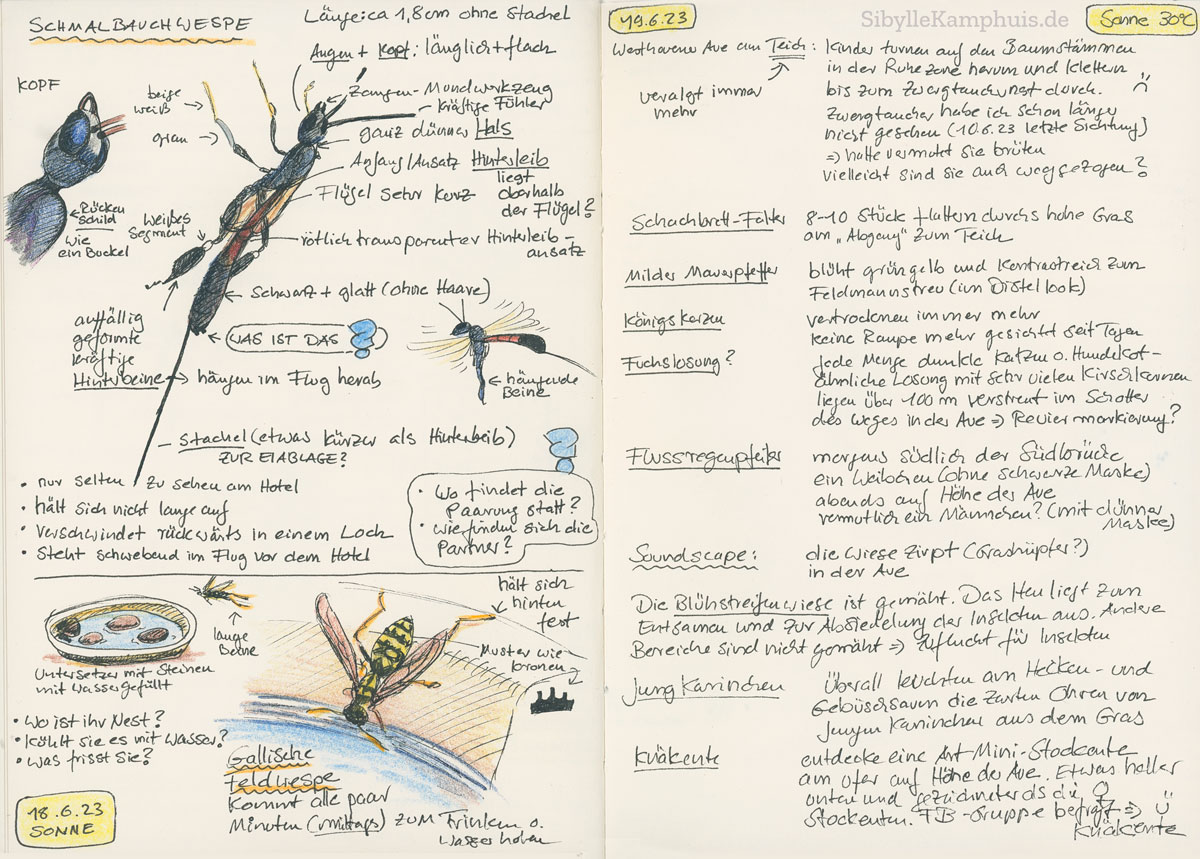 SCHMALBAUCHWESPE
Länge: ca 1,8cm ohne Stachel
Augen + Kopf: länglich + flach
KOPF
beige
weiß
grau
Zangen-Mundwerkzeug
kräftige Fühler
ganz dünner Hals
Anfang/Ansatz Hinterleib
liegt
oberhalb
der Flügel?
Flügel sehr kurz
Rücken
schild
wie
ein Buckel
weißes
Segment
rötlich transparenter Hinterleib-
ansatz
schwarz + glatt (ohne Haare)
auffällig
geformte
kräftige
Hinterbeine → hängen im Flug herab
WAS IST DAS ?
hängende
Beine
Stachel (etwas kürzer als Hinterleib)
ZUR EIABLAGE?
• nur selten zu sehen am Hotel
• hält sich nicht lange auf
• verschwindet rückwärts in einem Loch
• Steht schwebend im Flug vor dem Hotel
• Wo findet die
Paarung statt?
• wie finden sich die
Partner?
lange
Beine
Untersetzer mit Steinen
mit Wasser gefüllt
• Wo ist ihr Nest?
• Kühlt sie es mit Wasser?
• was frisst sie?
18.6.23
SONNE
hält sich
hinten
fest
Muster wie
Kronen
Gallische
Feldwespe
kommt alle paar
Minuten (mittags) zum Trinken o.
Wasser holen
19.6.23
SibylleKamphuis.de
Sonne 30°C
Westhovener Aue am Teich:
veralgt immer
mehr
Kinder turnen auf den Baumstämmen
in der Ruhezone herum und klettern
bis zum Zwergtauchernest durch.
Zwergtaucher habe ich schon länger
nicht gesehen (10.6.23 letzte Sichtung)
⇒ hatte vermutet sie brüten
vielleicht sind sie auch weggezogen?
Schachbrett-Falter
8-10 Stück flattern durchs hohe Gras
am „Abgang" zum Teich
Milder Mauerpfeffer
blüht grüngelb und kontrastreich zum
Feldmannstreu (im Distellook)
Königskerzen
vertrocknen immer mehr
keine Raupe mehr gesichtet seit Tagen
Fuchslosung?
Jede Menge dunkle Katzen o. Hundekot-
ähnliche Losung mit sehr vielen Kirschkernen
liegen über 100 m verstreut im Schotter
des Weges in der Aue ⇒ Reviermarkierung?
Flussregenpfeifer
morgens südlich der Südbrücke
ein Weibchen (ohne schwarze Maske)
abends auf Höhe der Aue
vermutlich ein Männchen? (mit dünner
Maske)
Soundscape:
die Wiese zirpt (Grashüpfer?)
in der Aue
Die Blühstreifenwiese ist gemäht. Das Heu liegt zum
Entsamen und zur Absiedelung der Insekten aus. Andere
Bereiche sind nicht gemäht ⇒ Zuflucht für Insekten
Jung Kaninchen
Überall leuchten am Hecken- und
Gebüschsaum die zarten Ohren von
jungen Kaninchen aus dem Gras
Knäkente
entdecke eine Art Mini-Stockente
am Ufer auf Höhe der Aue. Etwas heller
unten und gezeichneter als die ♀
Stockenten. FB-Gruppe befragt ⇒
Knäkente